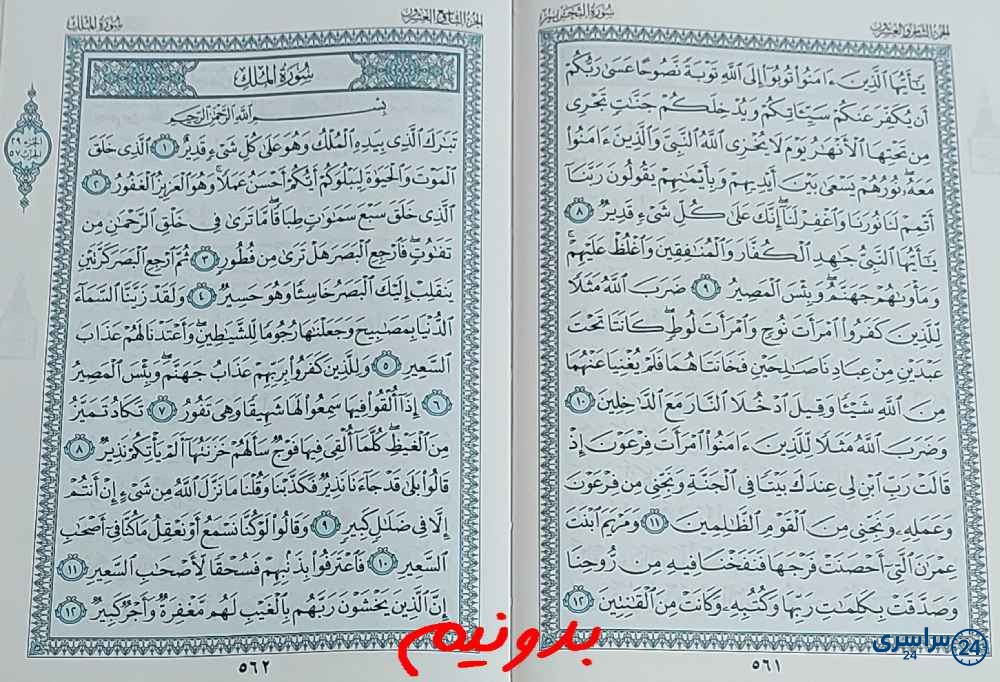 الجزء الثامن والعشرون
سورة التحريم
يَٰٓأَيُّهَا ٱلَّذِينَ ءَامَنُوا۟ تُوبُوٓا۟ إِلَى ٱللَّهِ تَوْبَةً نَّصُوحًا عَسَىٰ رَبُّكُمْ
أَن يُكَفِّرَ عَنكُمْ سَيِّـَٔاتِكُمْ وَيُدْخِلَكُمْ جَنَّٰتٍ تَجْرِى
مِن تَحْتِهَا ٱلْأَنْهَٰرُ يَوْمَ لَا يُخْزِى ٱللَّهُ ٱلنَّبِىَّ وَٱلَّذِينَ ءَامَنُوا۟
مَعَهُۥ نُورُهُمْ يَسْعَىٰ بَيْنَ أَيْدِيهِمْ وَبِأَيْمَٰنِهِمْ يَقُولُونَ رَبَّنَآ
أَتْمِمْ لَنَا نُورَنَا وَٱغْفِرْ لَنَآ إِنَّكَ عَلَىٰ كُلِّ شَىْءٍ قَدِيرٌ ٨
يَٰٓأَيُّهَا ٱلنَّبِىُّ جَٰهِدِ ٱلْكُفَّارَ وَٱلْمُنَٰفِقِينَ وَٱغْلُظْ عَلَيْهِمْ
وَمَأْوَىٰهُمْ جَهَنَّمُ وَبِئْسَ ٱلْمَصِيرُ ٩ ضَرَبَ ٱللَّهُ مَثَلًا
لِّلَّذِينَ كَفَرُوا۟ ٱمْرَأَتَ نُوحٍ وَٱمْرَأَتَ لُوطٍ كَانَتَا تَحْتَ
عَبْدَيْنِ مِنْ عِبَادِنَا صَٰلِحَيْنِ فَخَانَتَاهُمَا فَلَمْ يُغْنِيَا عَنْهُمَا
مِنَ ٱللَّهِ شَيْـًٔا وَقِيلَ ٱدْخُلَا ٱلنَّارَ مَعَ ٱلدَّٰخِلِينَ ١٠
وَضَرَبَ ٱللَّهُ مَثَلًا لِّلَّذِينَ ءَامَنُوا۟ ٱمْرَأَتَ فِرْعَوْنَ إِذْ
قَالَتْ رَبِّ ٱبْنِ لِى عِندَكَ بَيْتًا فِى ٱلْجَنَّةِ وَنَجِّنِى مِن فِرْعَوْنَ
وَعَمَلِهِۦ وَنَجِّنِى مِنَ ٱلْقَوْمِ ٱلظَّٰلِمِينَ ١١ وَمَرْيَمَ ٱبْنَتَ
عِمْرَٰنَ ٱلَّتِىٓ أَحْصَنَتْ فَرْجَهَا فَنَفَخْنَا فِيهِ مِن رُّوحِنَا
وَصَدَّقَتْ بِكَلِمَٰتِ رَبِّهَا وَكُتُبِهِۦ وَكَانَتْ مِنَ ٱلْقَٰنِتِينَ ١٢
٥٦١
الجزء التاسع والعشرون
سورة الملك
سورة الملك
بِسْمِ ٱللَّهِ ٱلرَّحْمَٰنِ ٱلرَّحِيمِ
تَبَٰرَكَ ٱلَّذِى بِيَدِهِ ٱلْمُلْكُ وَهُوَ عَلَىٰ كُلِّ شَىْءٍ قَدِيرٌ ١ ٱلَّذِى خَلَقَ
ٱلْمَوْتَ وَٱلْحَيَوٰةَ لِيَبْلُوَكُمْ أَيُّكُمْ أَحْسَنُ عَمَلًا وَهُوَ ٱلْعَزِيزُ ٱلْغَفُورُ ٢
ٱلَّذِى خَلَقَ سَبْعَ سَمَٰوَٰتٍ طِبَاقًا مَّا تَرَىٰ فِى خَلْقِ ٱلرَّحْمَٰنِ مِن
تَفَٰوُتٍ فَٱرْجِعِ ٱلْبَصَرَ هَلْ تَرَىٰ مِن فُطُورٍ ٣ ثُمَّ ٱرْجِعِ ٱلْبَصَرَ كَرَّتَيْنِ
يَنقَلِبْ إِلَيْكَ ٱلْبَصَرُ خَاسِئًا وَهُوَ حَسِيرٌ ٤ وَلَقَدْ زَيَّنَّا ٱلسَّمَآءَ
ٱلدُّنْيَا بِمَصَٰبِيحَ وَجَعَلْنَٰهَا رُجُومًا لِّلشَّيَٰطِينِ وَأَعْتَدْنَا لَهُمْ عَذَابَ
ٱلسَّعِيرِ ٥ وَلِلَّذِينَ كَفَرُوا۟ بِرَبِّهِمْ عَذَابُ جَهَنَّمَ وَبِئْسَ ٱلْمَصِيرُ
٦ إِذَآ أُلْقُوا۟ فِيهَا سَمِعُوا۟ لَهَا شَهِيقًا وَهِىَ تَفُورُ ٧ تَكَادُ تَمَيَّزُ
مِنَ ٱلْغَيْظِ كُلَّمَآ أُلْقِىَ فِيهَا فَوْجٌ سَأَلَهُمْ خَزَنَتُهَآ أَلَمْ يَأْتِكُمْ نَذِيرٌ ٨
قَالُوا۟ بَلَىٰ قَدْ جَآءَنَا نَذِيرٌ فَكَذَّبْنَا وَقُلْنَا مَا نَزَّلَ ٱللَّهُ مِن شَىْءٍ إِنْ أَنتُمْ
إِلَّا فِى ضَلَٰلٍ كَبِيرٍ ٩ وَقَالُوا۟ لَوْ كُنَّا نَسْمَعُ أَوْ نَعْقِلُ مَا كُنَّا فِىٓ أَصْحَٰبِ
ٱلسَّعِيرِ ١٠ فَٱعْتَرَفُوا۟ بِذَنۢبِهِمْ فَسُحْقًا لِّأَصْحَٰبِ ٱلسَّعِيرِ ١١
إِنَّ ٱلَّذِينَ يَخْشَوْنَ رَبَّهُم بِٱلْغَيْبِ لَهُم مَّغْفِرَةٌ وَأَجْرٌ كَبِيرٌ ١٢
٥٦٢
الجزء ٢٩
الحزب ٥٧
بدونیم
سراسری 24
24